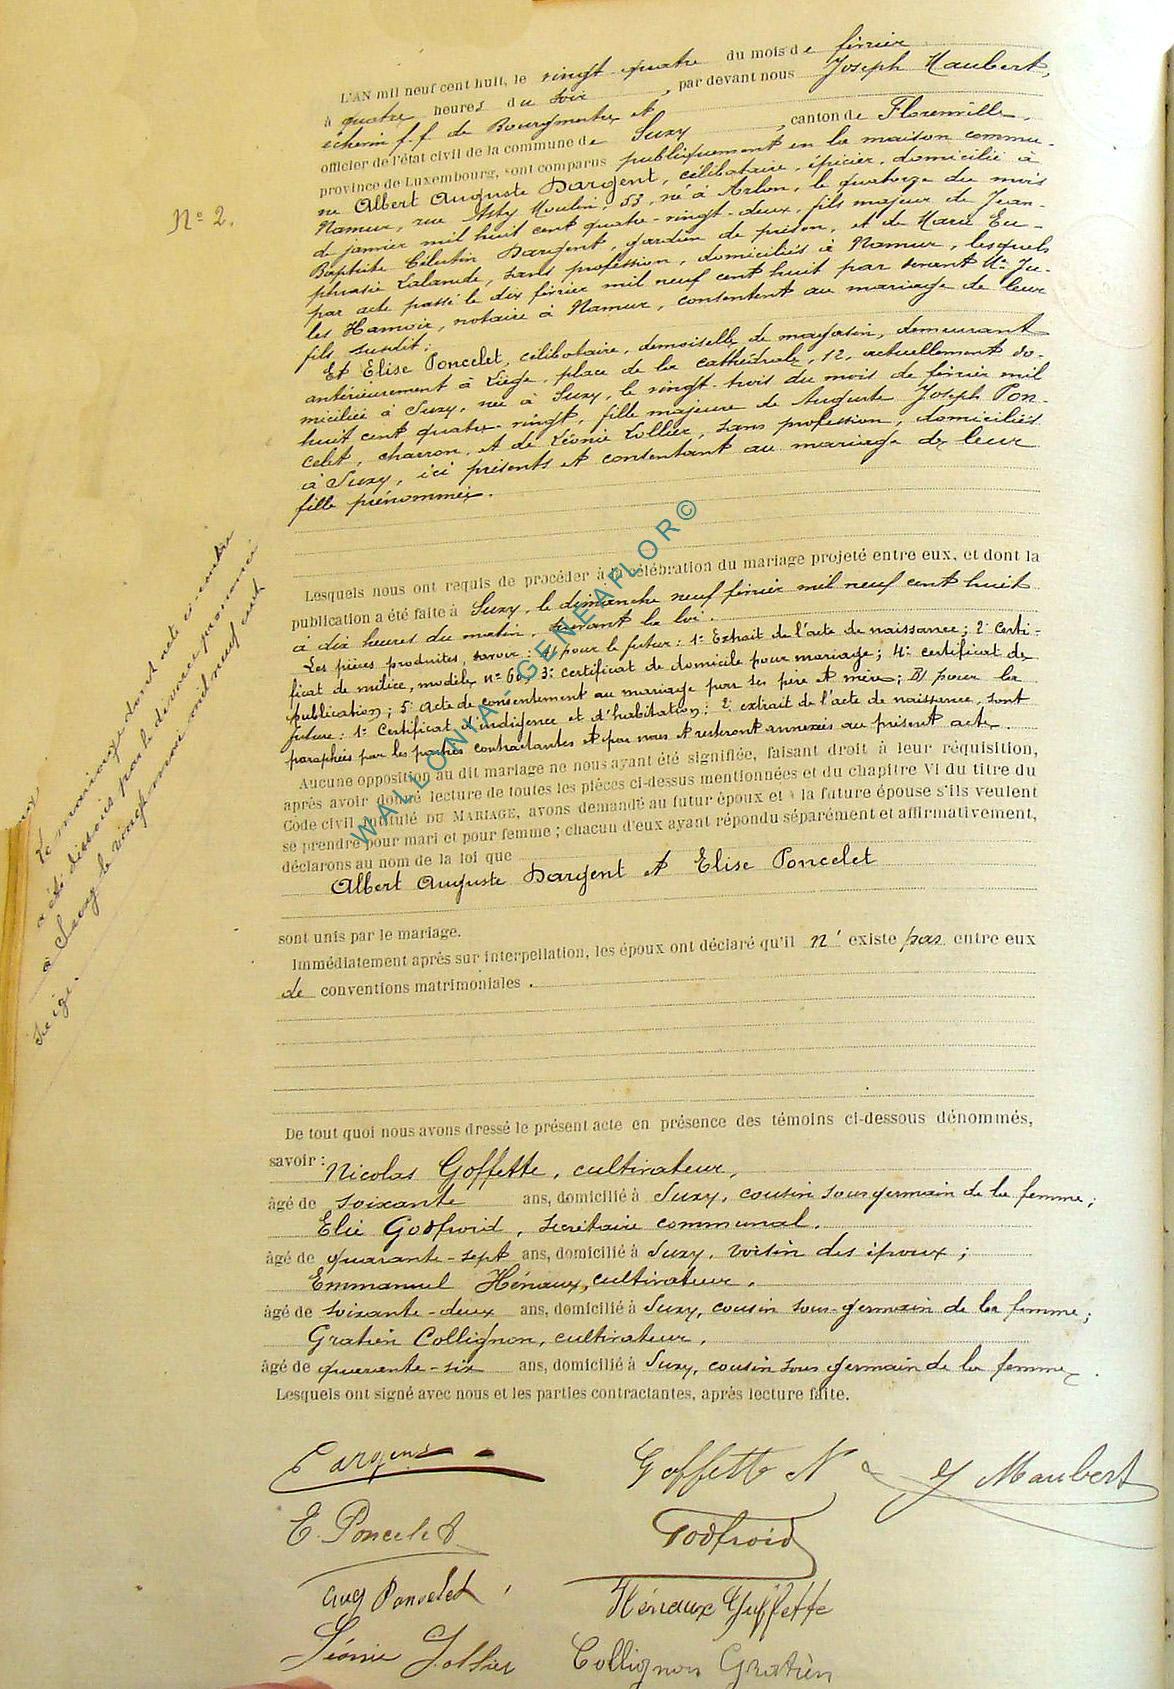 L'AN mil neuf cent huit, le vingt-quatre du mois de février
à quatre heures du soir, par devant nous Joseph Maubert,
échevin f.f. de Bourgmestre et
officier de l'état civil de la commune de Suxy, canton de Florenville,
province de Luxembourg, sont comparus publiquement en la maison commu-
ne Albert Auguste Dargent, célibataire, épicier, domicilié à
Namur, rue Moulin, 53, né à Arlon, le quatorze du mois
de janvier mil huit cent quatre-vingt-deux, fils majeur de Jean-
Baptiste Célestin Dargent, gardien de prison, et de Marie Eu-
phrasie Lalande, sans profession, domiciliés à Namur, lesquels
par acte passé le dix février mil neuf cent huit par devant Me Ju-
les Hamoir, notaire à Namur, consentent au mariage de leur
fils susdit;
Et Elise Poncelet, célibataire, demoiselle de magasin, demeurant
antérieurement à Liège, place de la cathédrale, 12, actuellement do-
miciliée à Suxy, née à Suxy, le vingt-trois du mois de février mil
huit cent quatre-vingt, fille majeure de Auguste Joseph Pon-
celet, charron, et de Léonie Lollier, sans profession, domiciliés
à Suxy, ici présents et consentant au mariage de leur
fille prénommée.
N° 2.
Lesquels nous ont requis de procéder à la célébration du mariage projeté entre eux, et dont la
publication a été faite à Suxy, le dimanche neuf février mil neuf cent huit
à dix heures du matin, suivant la loi.
Les pièces produites, savoir: A) pour le futur: 1° Extrait de l'acte de naissance; 2° Certi-
ficat de milice, modèle n° 60; 3° certificat de domicile pour mariage; 4° certificat de
publication; 5° acte de consentement au mariage par ses père et mère; B) pour la
future: 1° Certificat d'indigence et d'habitation; 2° extrait de l'acte de naissance, sont
paraphées par les parties contractantes et par nous et resteront annexées au présent acte.
Aucune opposition au dit mariage ne nous ayant été signifiée, faisant droit à leur réquisition,
après avoir donné lecture de toutes les pièces ci-dessus mentionnées et du chapitre VI du titre du
Code civil intitulé DU MARIAGE, avons demandé au futur époux et à la future épouse s'ils veulent
se prendre pour mari et pour femme; chacun d'eux ayant répondu séparément et affirmativement,
déclarons au nom de la loi que
Albert Auguste Dargent et Elise Poncelet
sont unis par le mariage.
Immédiatement après sur interpellation, les époux ont déclaré qu'il n'existe pas entre eux
de conventions matrimoniales.
Le mariage dont acte ci-contre
a été dissois par le divorce prononcé
à Suxy le vingt mai mil neuf cent
treize.
De tout quoi nous avons dressé le présent acte en présence des témoins ci-dessous dénommés,
savoir: Nicolas Goffette, cultivateur,
âgé de soixante ans, domicilié à Suxy, cousin sous germain de la femme;
Elie Godfroid, secrétaire communal,
âgé de quarante-sept ans, domicilié à Suxy, voisin des époux;
Emmanuel Hénaux, cultivateur,
âgé de soixante-deux ans, domicilié à Suxy, cousin sous-germain de la femme;
Gratien Collignon, cultivateur,
âgé de quarante-six ans, domicilié à Suxy, cousin sous germain de la femme.
Lesquels ont signé avec nous et les parties contractantes, après lecture faite.
Dargent Goffette N J Maubert
E. Poncelet Godfroid
Aug Poncelet Hénaux Goffette
Léonie Lollier Collignon Gratien
WALLONIA - GENEAFLOR©